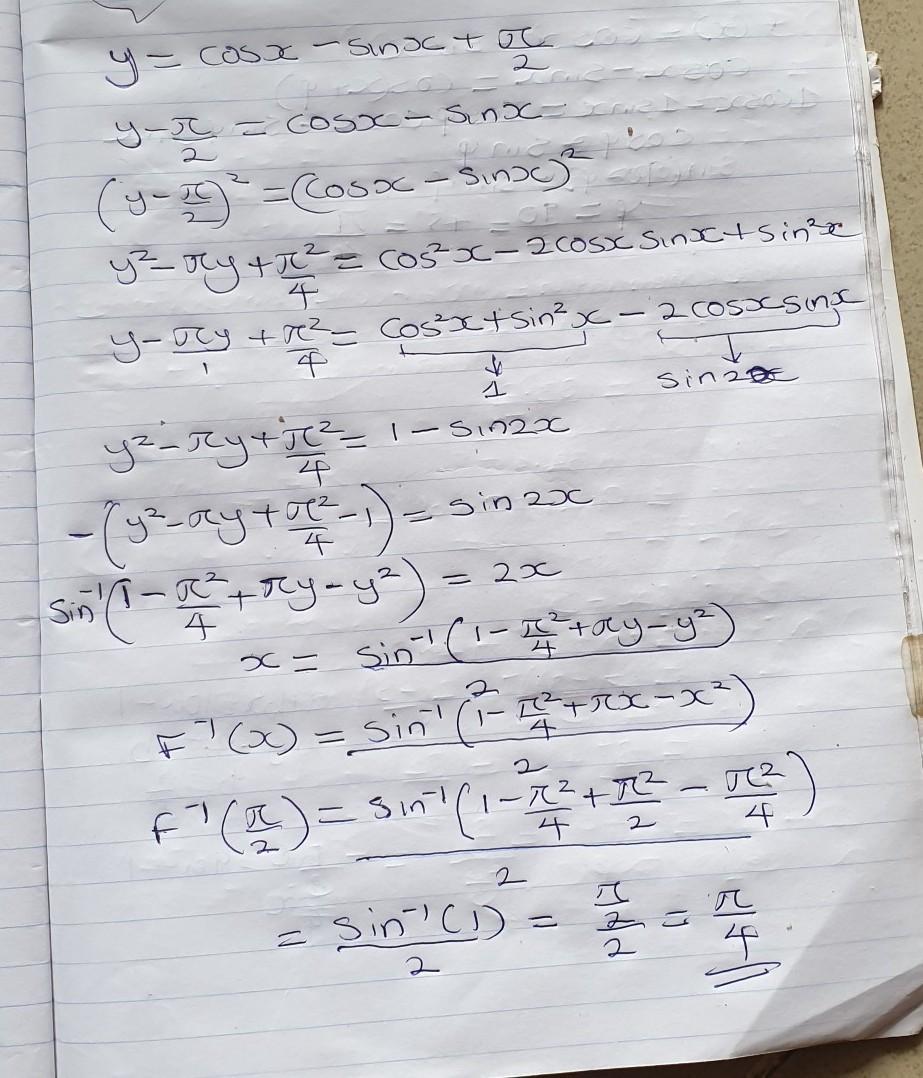 y = cosx - sinx + π/2
y - π/2 = cosx - sinx
(y - π/2)² = (cosx - sinx)²
y² - πy + π²/4 = cos²x - 2cosx sinx + sin²x
y - πy/1 + π²/4 = cos²x + sin²x - 2cosxsinx
↓ ↓
1 sin2x
y² - πy + π²/4 = 1 - sin2x
-(y² - πy + π²/4 - 1) = sin2x
sin⁻¹(1 - π²/4 + πy - y²) = 2x
x = sin⁻¹(1 - π²/4 + πy - y²)/2
F⁻¹(x) = sin⁻¹(1 - π²/4 + πx - x²)/2
F⁻¹(π/2) = sin⁻¹(1 - π²/4 + π²/2 - π²/4)/2
= sin⁻¹(1)/2 = π/2/2 = π/4